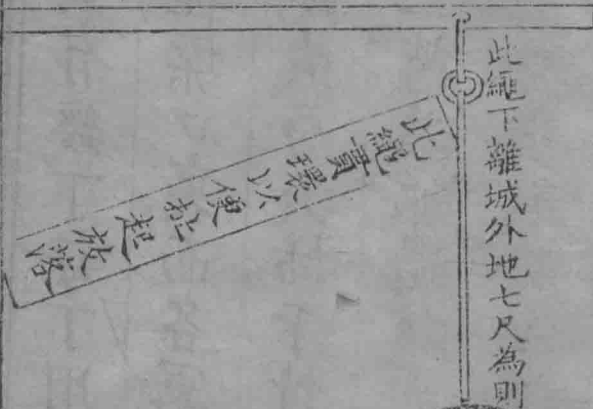 此繩下離城外地七尺為則
此繩貫環以便扯起放落